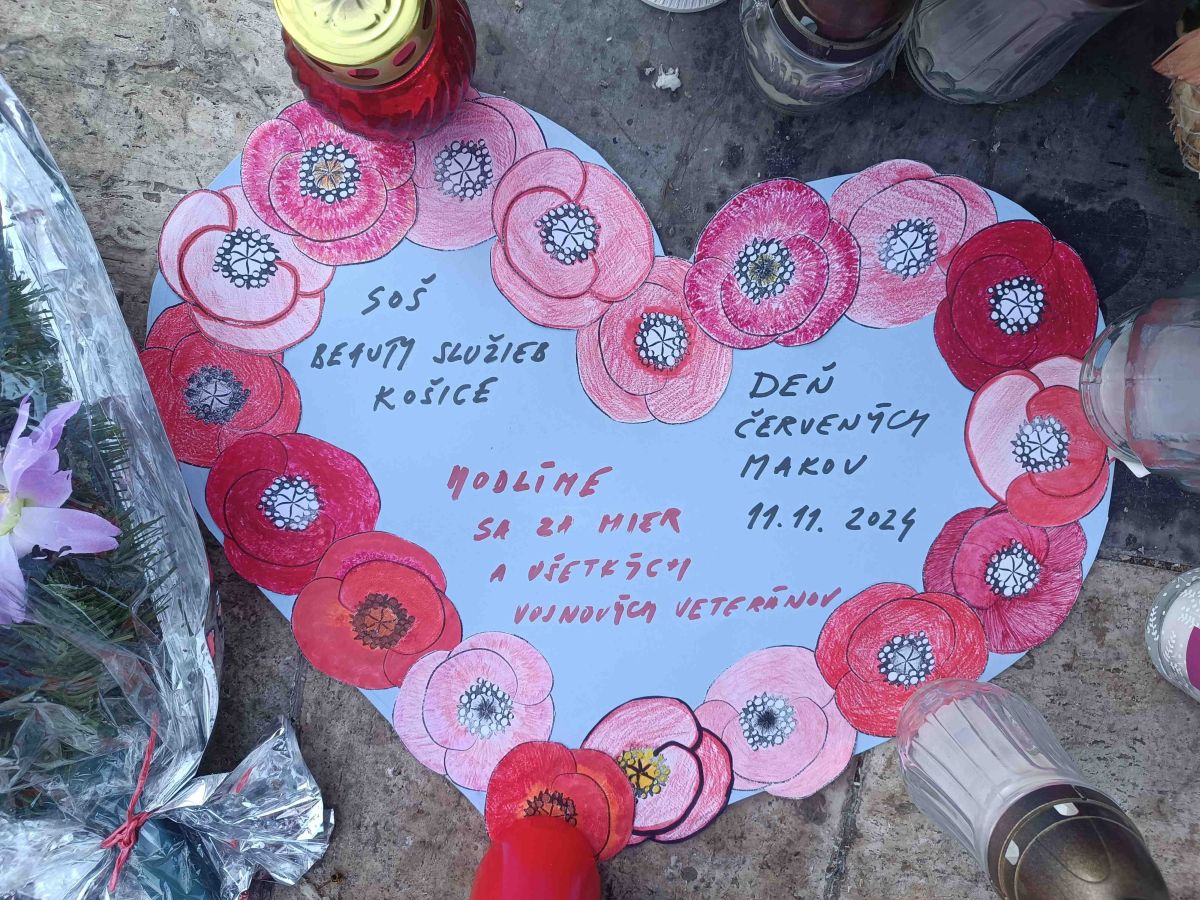 SOŠ
BEAUTY SLUŽIEB
KOŠICE
DEŇ
ČERVENÝCH
MAKOV
11.11. 2024
MODLÍME
SA ZA MIER
A VŠETKÝCH
VOJNOVÝCH VETERÁNOV